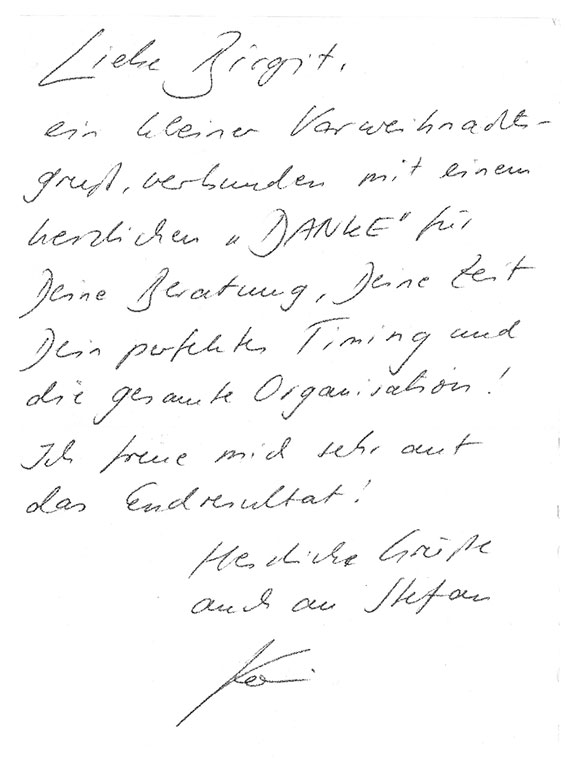 Liebe Birgit,
ein kleiner Vorweihnachts-
gruß, verbunden mit einem
herzlichen „DANKE“ für
Deine Beratung, Deine Zeit
Dein perfektes Timing und
die gesamte Organisation!
Ich freue mich sehr auf
das Endresultat!
Herzliche Grüße
auch an Stefan